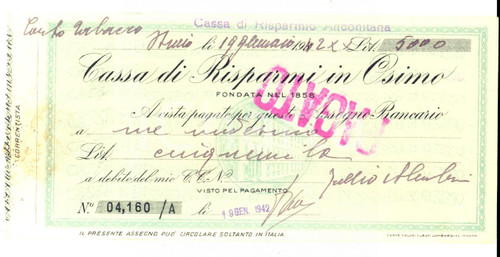 Cassa di Risparmio Anconitana
Conto Tabacco
Osimo li 19 Gennaio 1942 XX Lit. 5000
Cassa di Risparmi in Osimo
FONDATA NEL 1858
PAGATO
A vista pagate per questo Assegno Bancario
a me medesimo
Lit. cinquemila
a debito del mio C/C N.
VISTO PEL PAGAMENTO
N.° 04,160 /A li 19 GEN. 1942
IL PRESENTE ASSEGNO PUÒ CIRCOLARE SOLTANTO IN ITALIA
CORRENTISTA